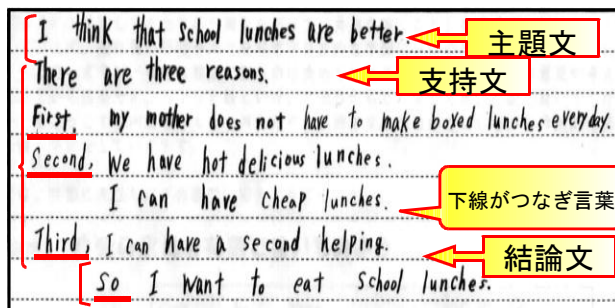 I think that school lunches are better. 主題文
There are three reasons. 支持文
First, my mother does not have to make boxed lunches everyday.
Second, we have hot delicious lunches.
I can have cheap lunches. 下線がつなぎ言葉
Third, I can have a second helping. 結論文
So I want to eat school lunches.